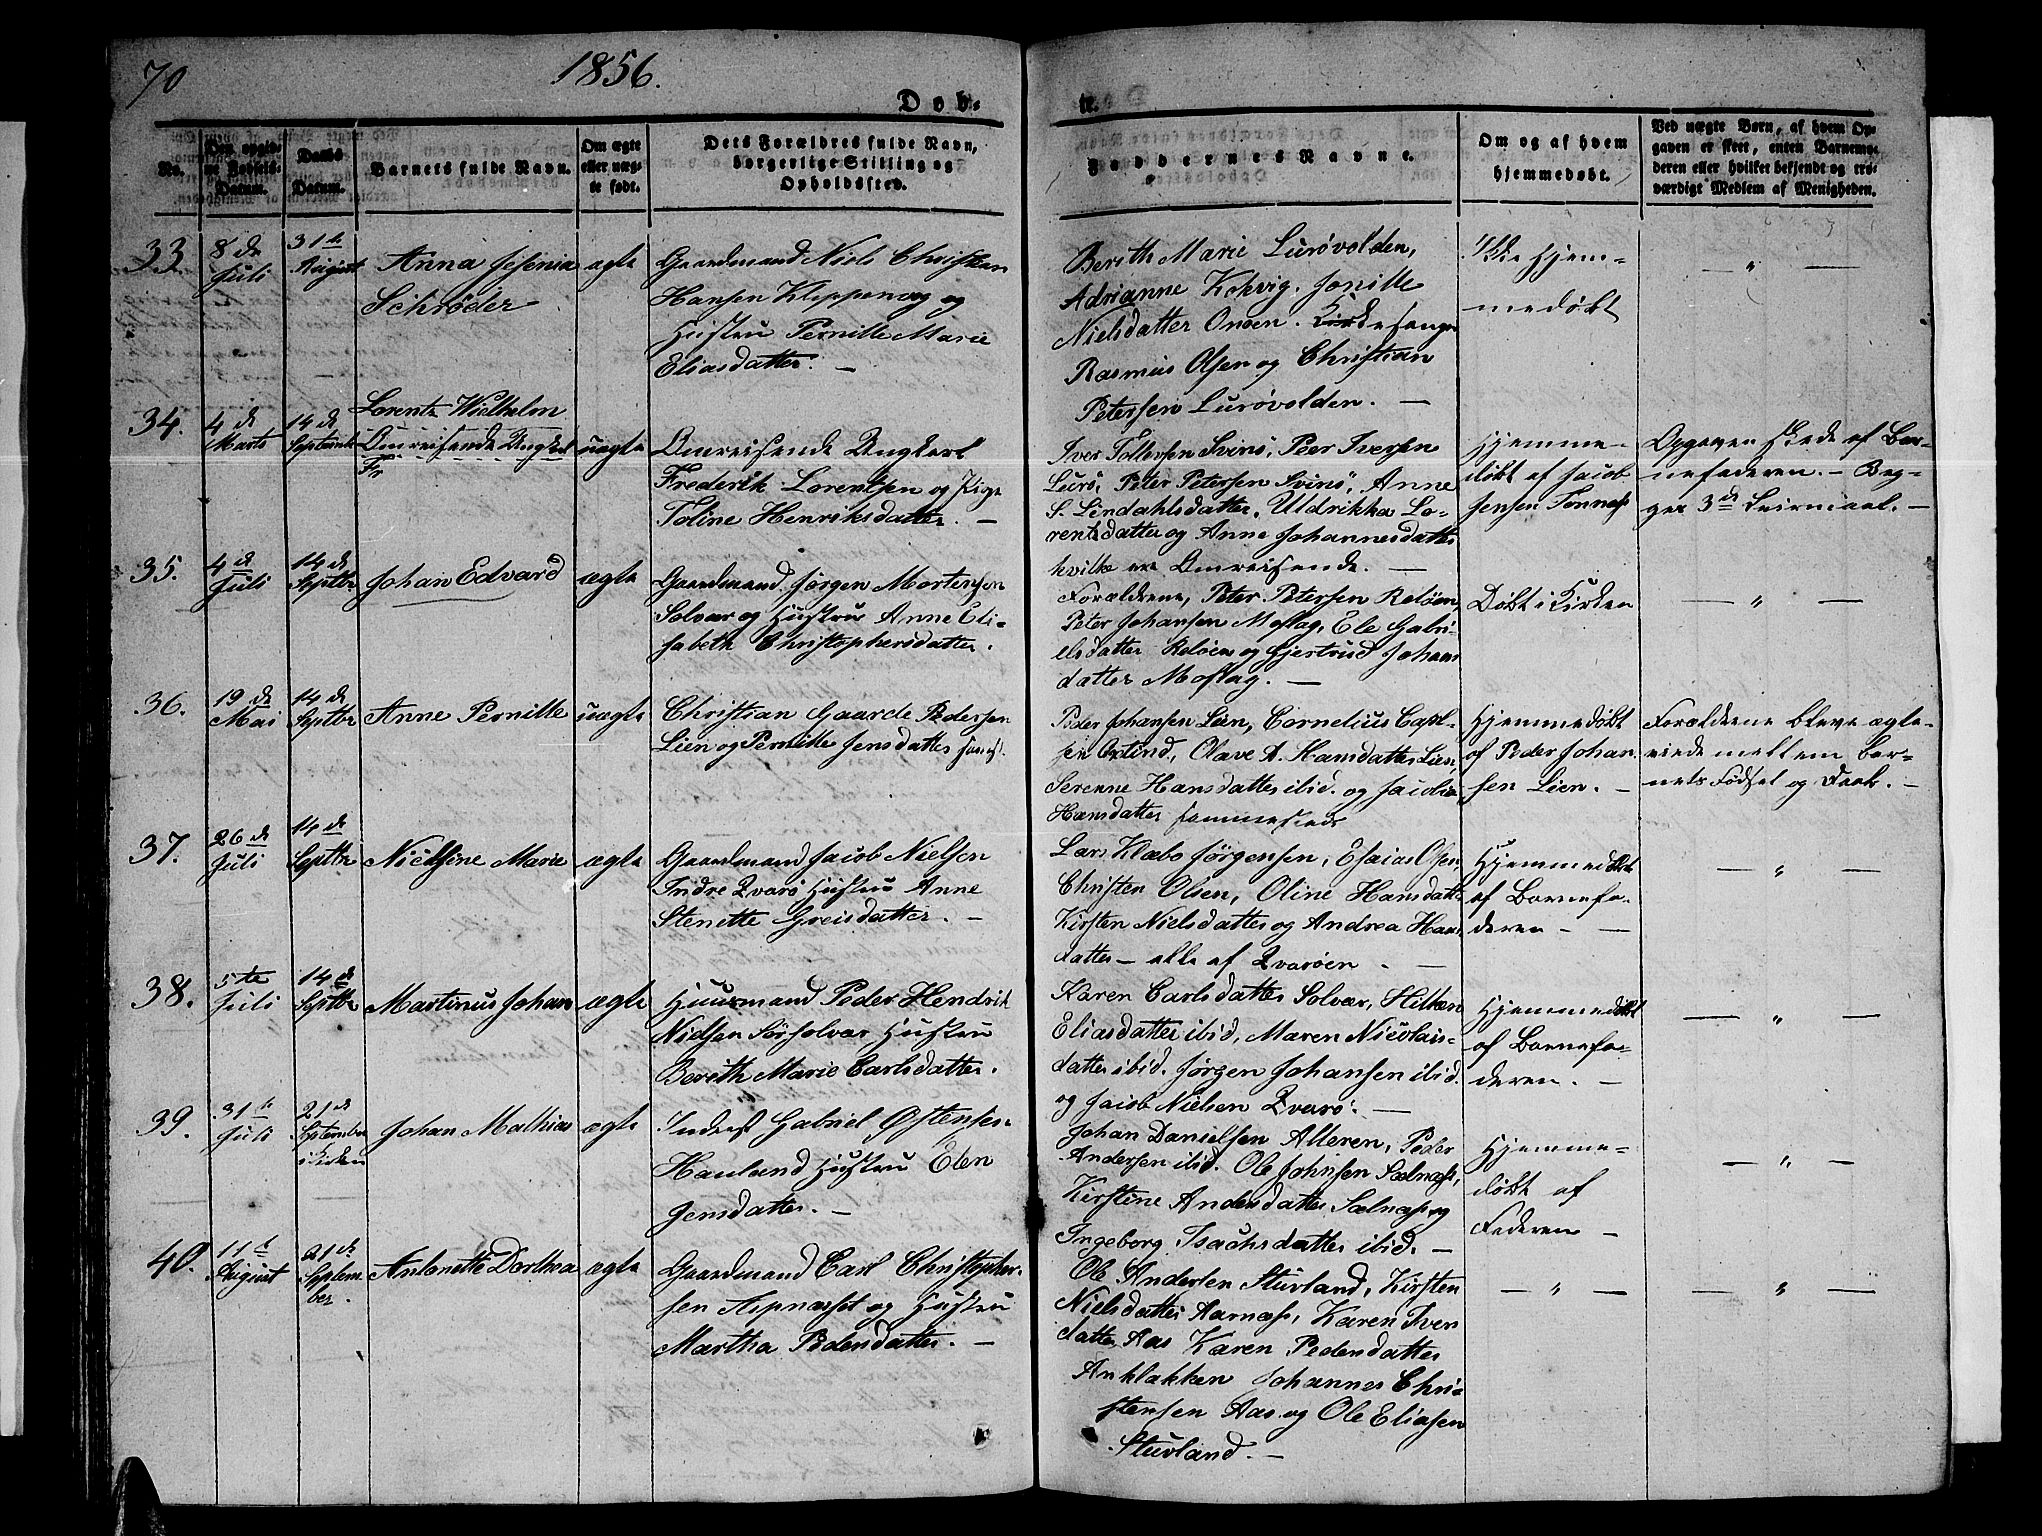 70
1856.
Døb-
te.
No.
Den opgiv-
ne Fødsels-
Datum.
Daabs-
Datum.
Barnets fulde Navn.
Om ægte
eller uæg-
te født.
Dets Forældres fulde Navn,
borgerlige Stilling og
Opholdssted.
Faddernes Navne.
Om og af hvem
hjemmedøbt.
Ved uægte Børn, af hvem Op-
gaven er skeet, enten Barnemo-
deren eller hvilket bekjendt og tro-
værdigt Medlem af Menigheden.
33.
8de
Juli
31te
August
Anna Jesenia
Schrøder
ægte
Gaardmand Niels Christian
Hansen Kleppenæg og
Hustru Pernille Marie
Eliasdatter. —
Berith Marie Lurøvolden,
Adrianne Kokvig. Jonille
Nielsdatter Onøen. Kirkesanger
Rasmus Olsen og Christian
Petersen Lurøvolden. —
Ikke Hjem-
medøbt
— " —
34.
4de
Marts
14de
Septembr
Lorentz Wielhelm
Omreisende Ungkarl
Fr
uægte
Omreisende Ungkarl
Frederik Lorentsen og Pige
Toline Henriksdatter. —
Iver Tollevsen Svinø, Peer Iversen
Lurø, Peter Petersen Svinø, Anne
S. Lindahlsdatter, Uldrikka Lo-
rentsdatter og Anne Johannesdatter
hvilke ere Omreisende. —
Hjemme-
døbt af Jacob
Jensen Tonnes
Opgaven skede af Bar-
nefaderen. — Beg-
ges 3de Leiermaal. —
35.
4de
Juli
14de
Septbr
Johan Edvard
ægte
Gaardmand. Jørgen Mortensen
Solvær og Hustru Anne Eli-
sabeth Christophersdatter.
Forældrene, Peter Petersen Reløen,
Peter Johansen Moflag, Ele Gabri-
elsdatter Reløen og Gjertrud Johans
datter Moflag. —
Døbt i Kirken
— " —
36.
19de
Mai
14de
Septbr
Anne Pernille
uægte
Christian Gaarde Pedersen
Lien og Pernille Jensdatter
Peder Johansen Lien, Cornelius Carl-
sen Qutind, Olave A. Hansdatter Lien,
Serenne Hansdatter ibid. og
Hansdatter sammesteds
Hjemmedøbt
af Peder Johan
sen Lien. —
Forældrene bleve ægte-
viede mellem Bar-
nets Fødsel og Daab. —
37.
26de
Juli
14de
Septbr
Nielsine Marie
ægte
Gaardmand Jacob Nielsen
Indre Qvarø Hustru Anne
Stenette Greisdatter. —
Lars Klæbo Jørgensen, Esaias Olsen,
Christen Olsen, Oline Hansdatter
Kirsten Nielsdatter og Andrea Hans
datter — alle af Qvarøen —
Hjemmedøbt
af Barnefa-
deren — —
— " —
38.
5te
Juli
14de
Septbr
Martinus Johan
ægte
Huusmand Peder Hendrik
Nielsen Sørsolvær Hustru
Berith Marie Carlsdatter.
Karen Carlsdatter Solvær,
Eliasdatter ibid, Maren Nicolais-
datter ibid. Jørgen Johansen ibid.
og Jacob Nielsen Qvarø. —
Hjemmedøbt
af Barnefa-
deren. —
— " —
39.
31te
Juli
21de
September
i Kirken
Johan Mathias
ægte
Inderst Gabriel Østensen
Hauland Hustru Elen
Jensdatter. —
Johan Danielsen Alteren, Peder
Andersen ibid. Ole Johnsen Sælnæss,
Kirstine Andersdatter Sælnæs og
Ingeborg Isachsdatter ibid. —
Hjemme-
døbt af
Faderen —
— " —
40.
11te
August
21de
Septem
ber.
Antonette Dorthea
ægte
Gaardmand Carl Christopher-
sen Aspnæsset og Hustru
Martha Pedersdatter. —
Ole Andersen Stuvland, Kirsten
Nielsdatter Aarnæss, Karen Iver
datter Aas Karen Pedersdatter
Anklakken Johannes Chri-
stensen Aas og Ole Eliasen
Stuvland. —
— " —
— " —